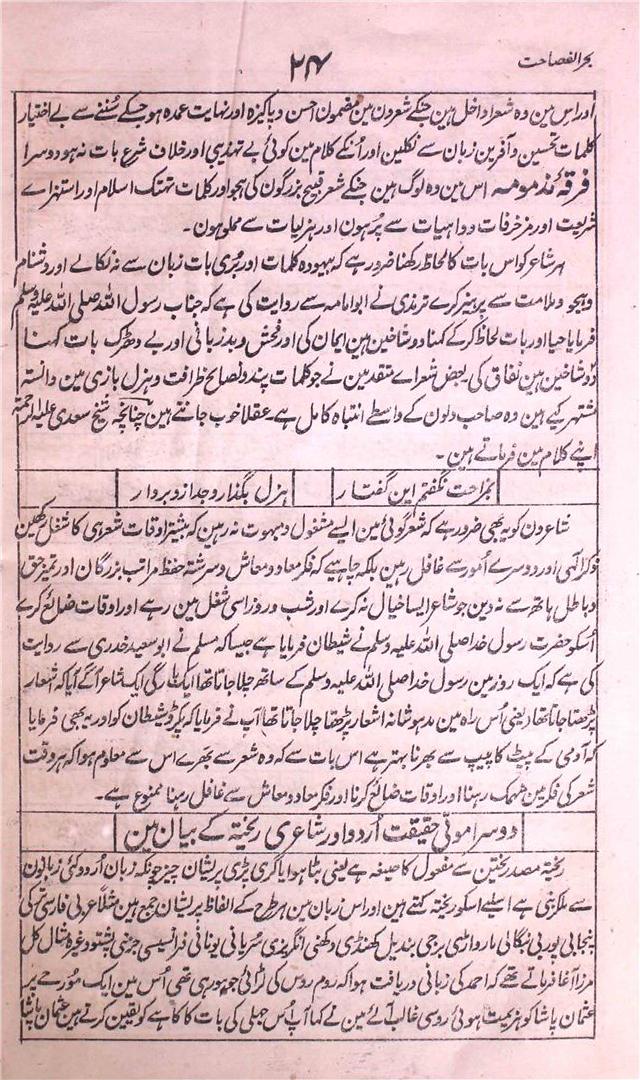 بحر الفصاحت
۲۴
اور اس مین وہ شعرا داخل ہین جنکے شعرون مین مضمون احسن و پاکیزہ اور نہایت عمدہ ہو جسکے سُننے سے بے اختیار
کلمات تحسین و آفرین زبان سے نکلین اور اُنکے کلام مین کوئی بے تہذیبی اور خلاف شرع بات نہ ہو دوسرا
فرقۂ مذمومہ اس مین وہ لوگ ہین جنکے شعر قبیح بزرگون کی ہجو اور کلمات تہتک اسلام اور استہزاے
شریعت اور مزخرفات و واہیات سے پُر ہون اور ہزلیات سے مملو ہون۔
ہر شاعر کو اس بات کا لحاظ رکھنا ضرور ہے کہ بیہودہ کلمات اور بُری بات زبان سے نہ نکالے اور دشنام
و ہجو و ملامت سے پرہیز کرے ترمذی نے ابوامامہ سے روایت کی ہے کہ جناب رسول اللہ صلی اللہ علیہ وسلم
فرمایا حیا اور بات لحاظ کرکے کہنا دو شاخین ہین ایمان کی اور فحش و بدزبانی اور بے دھڑک بات کہنا
دو شاخین ہین نفاق کی۔ بعض شعراے متقدمین نے جو کلمات پند و نصائح ظرافت و ہزل بازی مین دانستہ
مشتہر کیے ہین وہ صاحب دلون کے واسطے انتباہ کامل ہے۔ عقلا خوب جانتے ہین چنانچہ شیخ سعدی علیہ الرحمۃ
اپنے کلام مین فرماتے ہین۔
بمزاحت نگفتم این گفتار ہزل بگذار و جد ازو بردار
شاعرون کو یہ بھی ضرور ہے کہ شعر گوئی مین ایسے مشغول و مبہوت نہ رہین کہ بیشتر اوقات شعر ہی کا شغل رکھین
ذکر الٰہی اور دوسرے اُمور سے غافل رہین بلکہ چاہیے کہ فکر معاد و معاش و سررشتہ حفظ مراتب بزرگان اور تمیز حق
و باطل ہاتھ سے نہ دین جو شاعر ایسا خیال نہ کرے اور شب و روز اسی شغل مین رہے اور اوقات ضائع کرے
اُسکو حضرت رسول خدا صلی اللہ علیہ وسلم نے شیطان فرمایا ہے جیسا کہ مسلم نے ابو سعید خدری سے روایت
کی ہے کہ ایک روز مین رسول خدا صلی اللہ علیہ وسلم کے ساتھ چلا جاتا تھا ایک ایک شاعر آگے آیا کہ اشعار
پڑھتا جاتا تھا یعنی اُس راہ مین مدہوشانہ اشعار پڑھتا چلا جاتا تھا آپ نے فرمایا کہ پکڑو شیطان کو اور یہ بھی فرمایا
کہ آدمی کے پیٹ کا پیپ سے بھرنا بہتر ہے اس بات سے کہ وہ شعر سے بھرے اس سے معلوم ہوا کہ ہر وقت
شعر کی فکر مین منہمک رہنا اور اوقات ضائع کرنا اور فکر معاد و معاش سے غافل رہنا ممنوع ہے۔
دوسرا موتی حقیقت اُردو اور شاعری ریختہ کے بیان مین
ریختہ مصدر ریختن سے مفعول کا صیغہ ہے یعنی بٹا ہوا یا گری پڑی پریشان چیز چونکہ زبان اُردو کئی زبانون
سے ملکر بنی ہے اسلیے اسکو ریختہ کہتے ہین اور اس زبان مین ہر طرح کے الفاظ پریشان جمع ہین مثلاً عربی فارسی ترکی
پنجابی پوربی بنگالی مارواڑی برجی بندیل کھنڈی دکھنی انگریزی سُریانی یونانی فرانسیسی جرمنی پشتو وغیرہ مثال کل
مرزا آغا فرماتے تھے کہ احمد کی زبانی دریافت ہوا کہ روم روس کی لڑائی جو ہو رہی تھی اُس مین ایک مُورچے پر
عثمان پاشا کو ہزیمت ہوئی روسی غالب آئے مین نے کہا آپ اُس جبلی کی بات کا کاہے کو یقین کرتے ہین عثمان پاشا